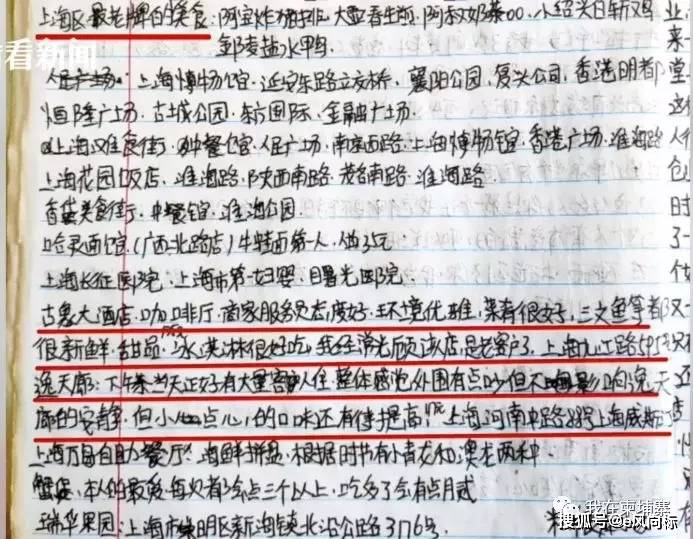 看看新闻
上海区最老牌的美食：阿宝炸猪排、大壶春生煎、阿叔奶茶00、小绍兴白斩鸡
邹凑盐水鸭
人民广场、上海博物馆、延安东路立交桥、襄阳公园、复兴公司、香港明都
恒隆广场、古城公园、东方国际、金融广场
上海难食街、钟餐馆、人民广场、南京西路、上海博物馆、香港广场、淮海路
上海花园饭店、淮海路、陕西南路、茂名南路、淮海路
香港美食街、中餐馆、淮海公园
哈灵面馆（广西北路店）牛特面第一人
上海长征医院、上海市第一妇婴、曙光医院
古象大酒店、咖啡厅、商家服务员态度好、环境优雅、菜肴很好、三文鱼等都
很新鲜、甜品、冰淇淋很好吃、我经常光顾该店、是老客户了、上海九江路595号
逸天廊：下午茶当天正好有大量客人住、整体感觉外围有点吵但不影响逸天
廊的安静、但小点心的口味还有待提高、上海河南中路88号上海威斯
上海万自助餐厅：海鲜拼盘、根据时节有小青龙和澳龙两种
蟹、本人的最爱每次有会点三个以上、吃多了会有点月贰
瑞华果园：上海市崇明区新海镇北沿公路3176号
我在柬埔寨
搜狐号@b风向标